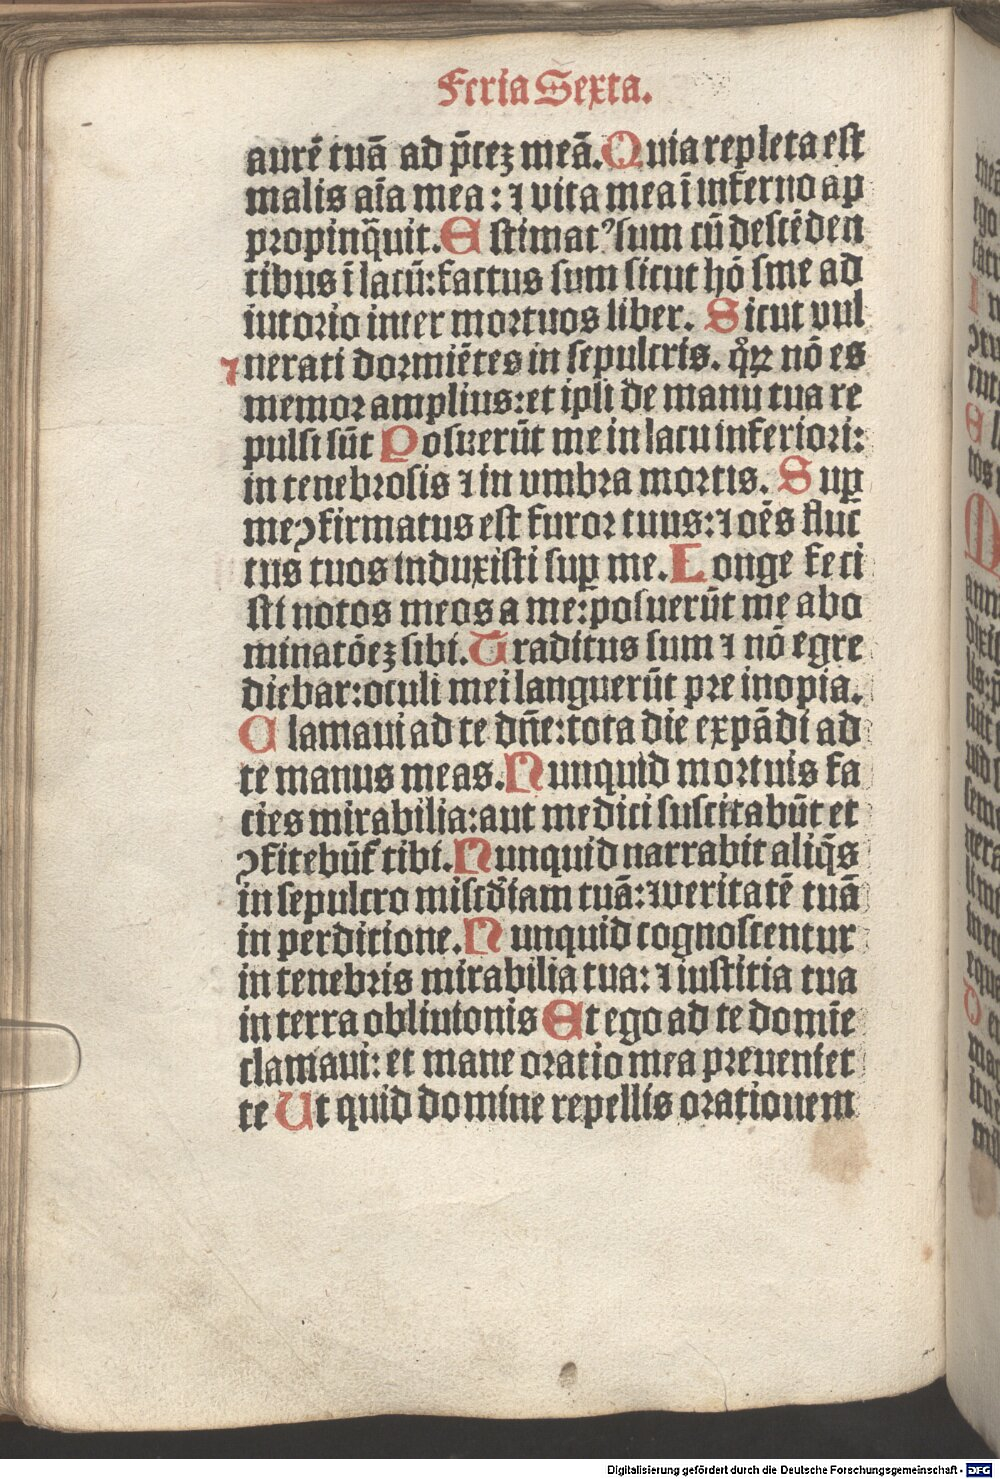 Feria Sexta.
aurē tuā ad p̄cez meā. Quia repleta est
malis aīa mea: ⁊ vita mea ī inferno ap
propinq̄uit. Estimatꝰ sum cū descēden
tibus ī lacū: factus sum sicut hō sine ad
iutorio inter mortuos liber. Sicut vul
⁊ nerati dormiētes in sepulcris. qͦꝝ nō es
memor amplius: et ipsi de manu tua re
pulsi sūt Posuerūt me in lacu inferiori:
in tenebrosis ⁊ in vmbra mortis. Suꝑ
me ꝯfirmatus est furor tuus: ⁊ oēs fluc̄
tus tuos induxisti suꝑ me. Longe feci
sti notos meos a me: posuerūt me abo
minatōez sibi. Traditus sum ⁊ nō egre
diebar: oculi mei languerūt pre inopia.
Clamaui ad te dn̄e: tota die expādi ad
te manus meas. Nunquid mortuis fa
cies mirabilia: aut medici suscitabūt et
ꝯfitebūt̄ tibi. Nunquid narrabit aliq̄s
in sepulcro misc̄diam tuā: ⁊ veritatē tuā
in perditione. Nunquid cognoscentur
in tenebris mirabilia tua: ⁊ iustitia tua
in terra obliuionis Et ego ad te domīe
clamaui: et mane oratio mea preueniet
te Ut quid domine repellis orationem
Digitalisierung gefördert durch die Deutsche Forschungsgemeinschaft - DFG